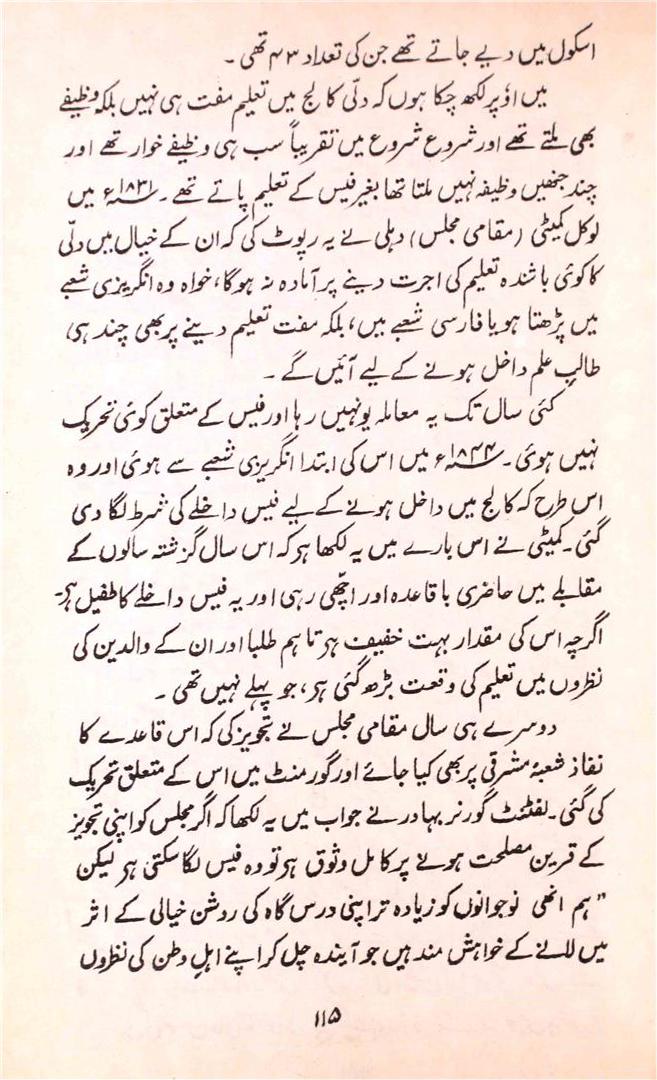 اسکول میں دیے جاتے تھے جن کی تعداد ۴۳ تھی ۔
میں اوٗپر لکھ چکا ہوں کہ دلّی کالج میں تعلیم مفت ہی نہیں بلکہ وظیفے
بھی ملتے تھے اور شروع شروع میں تقریباً سب ہی وظیفے خوار تھے اور
چند جنھیں وظیفہ نہیں ملتا تھا بغیر فیس کے تعلیم پاتے تھے ۔ ۱۸۳۱ء میں
لوکل کمیٹی (مقامی مجلس) دہلی نے یہ رپوٹ کی کہ ان کے خیال میں دلّی
کا کوئی باشندہ تعلیم کی اجرت دینے پر آمادہ نہ ہوگا، خواہ وہ انگریزی شعبے
میں پڑھتا ہو یا فارسی شعبے میں، بلکہ مفت تعلیم دینے پر بھی چند ہی
طالب علم داخل ہونے کے لیے آئیں گے ۔
کئی سال تک یہ معاملہ یونہیں رہا اور فیس کے متعلق کوئی تحریک
نہیں ہوئی ۔ ۱۸۴۴ء میں اس کی ابتدا انگریزی شعبے سے ہوئی اور وہ
اس طرح کہ کالج میں داخل ہونے کے لیے فیس داخلے کی شرط لگا دی
گئی ۔ کمیٹی نے اس بارے میں یہ لکھا ہر کہ اس سال گزشتہ سالوں کے
مقابلے میں حاضری باقاعدہ اور اچھّی رہی اور یہ فیس داخلے کا طفیل ہر۔
اگرچہ اس کی مقدار بہت خفیف ہر تاہم طلبا اور ان کے والدین کی
نظروں میں تعلیم کی وقعت بڑھ گئی ہر، جو پہلے نہیں تھی ۔
دوسرے ہی سال مقامی مجلس نے تجویز کی کہ اس قاعدے کا
نفاذ شعبۂ مشرقی پر بھی کیا جائے اور گورمنٹ میں اس کے متعلق تحریک
کی گئی ۔ لفٹنٹ گورنر بہادر نے جواب میں یہ لکھا کہ اگر مجلس کو اپنی تجویز
کے قرین مصلحت ہونے پر کامل وثوق ہر تو وہ فیس لگا سکتی ہر لیکن
”ہم انھی نوجوانوں کو زیادہ تر اپنی درس گاہ کی روشن خیالی کے اثر
میں لانے کے خواہش مند ہیں جو آیندہ چل کر اپنے اہلِ وطن کی نظروں
۱۱۵